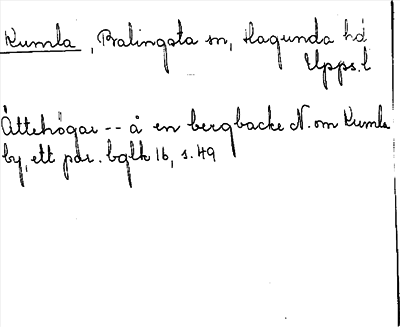 Kumla, Balingsta sn, Hagunda hd
Upps. l
Ättehögar -- å en bergbacke N. om Kumla
by, ett par. bglk 16, s. 49